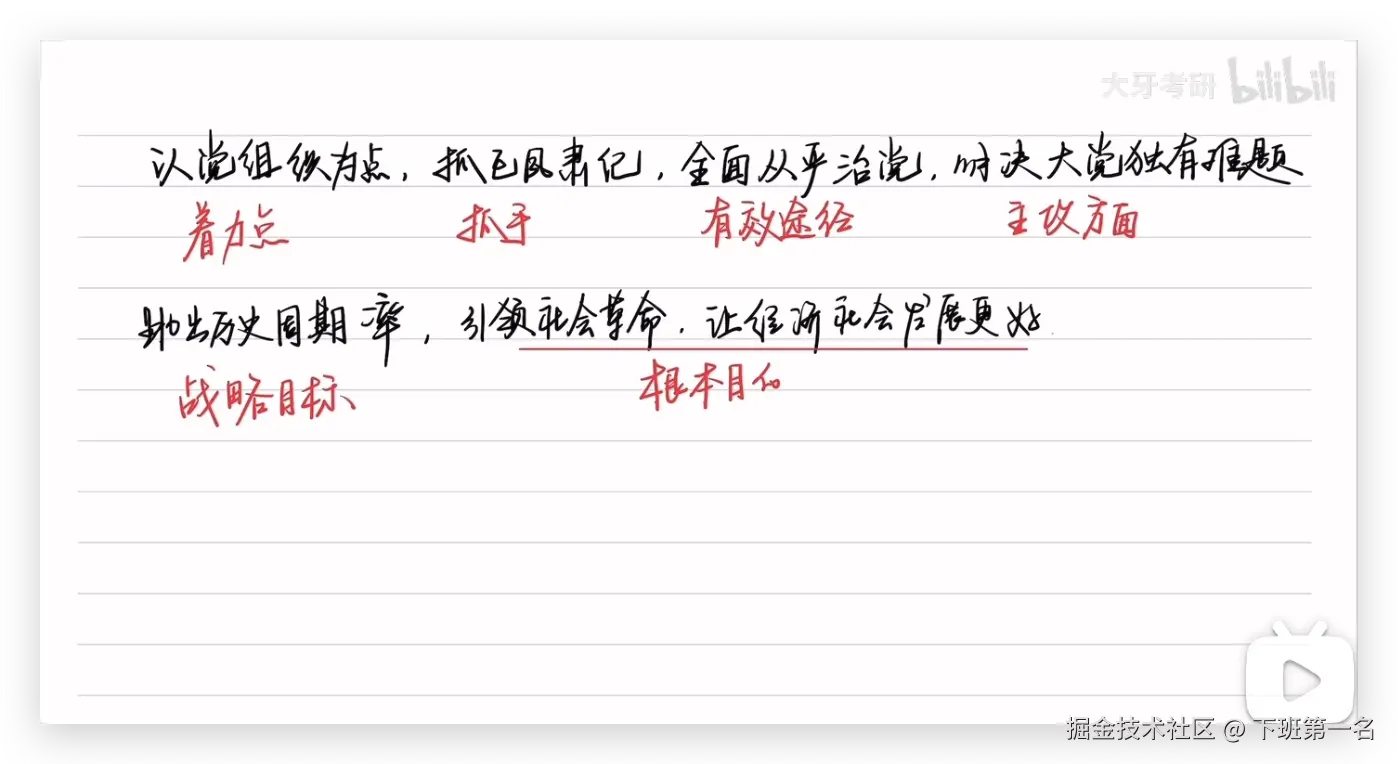 大牙考研 bilibili
以党组织为点，抓正风肃纪，全面从严治党，解决大党独有难题
着力点 抓手 有效途径 主攻方面
跳出历史周期率，引领社会革命，让经济社会发展更好
战略目标 根本目的
掘金技术社区 @ 下班第一名